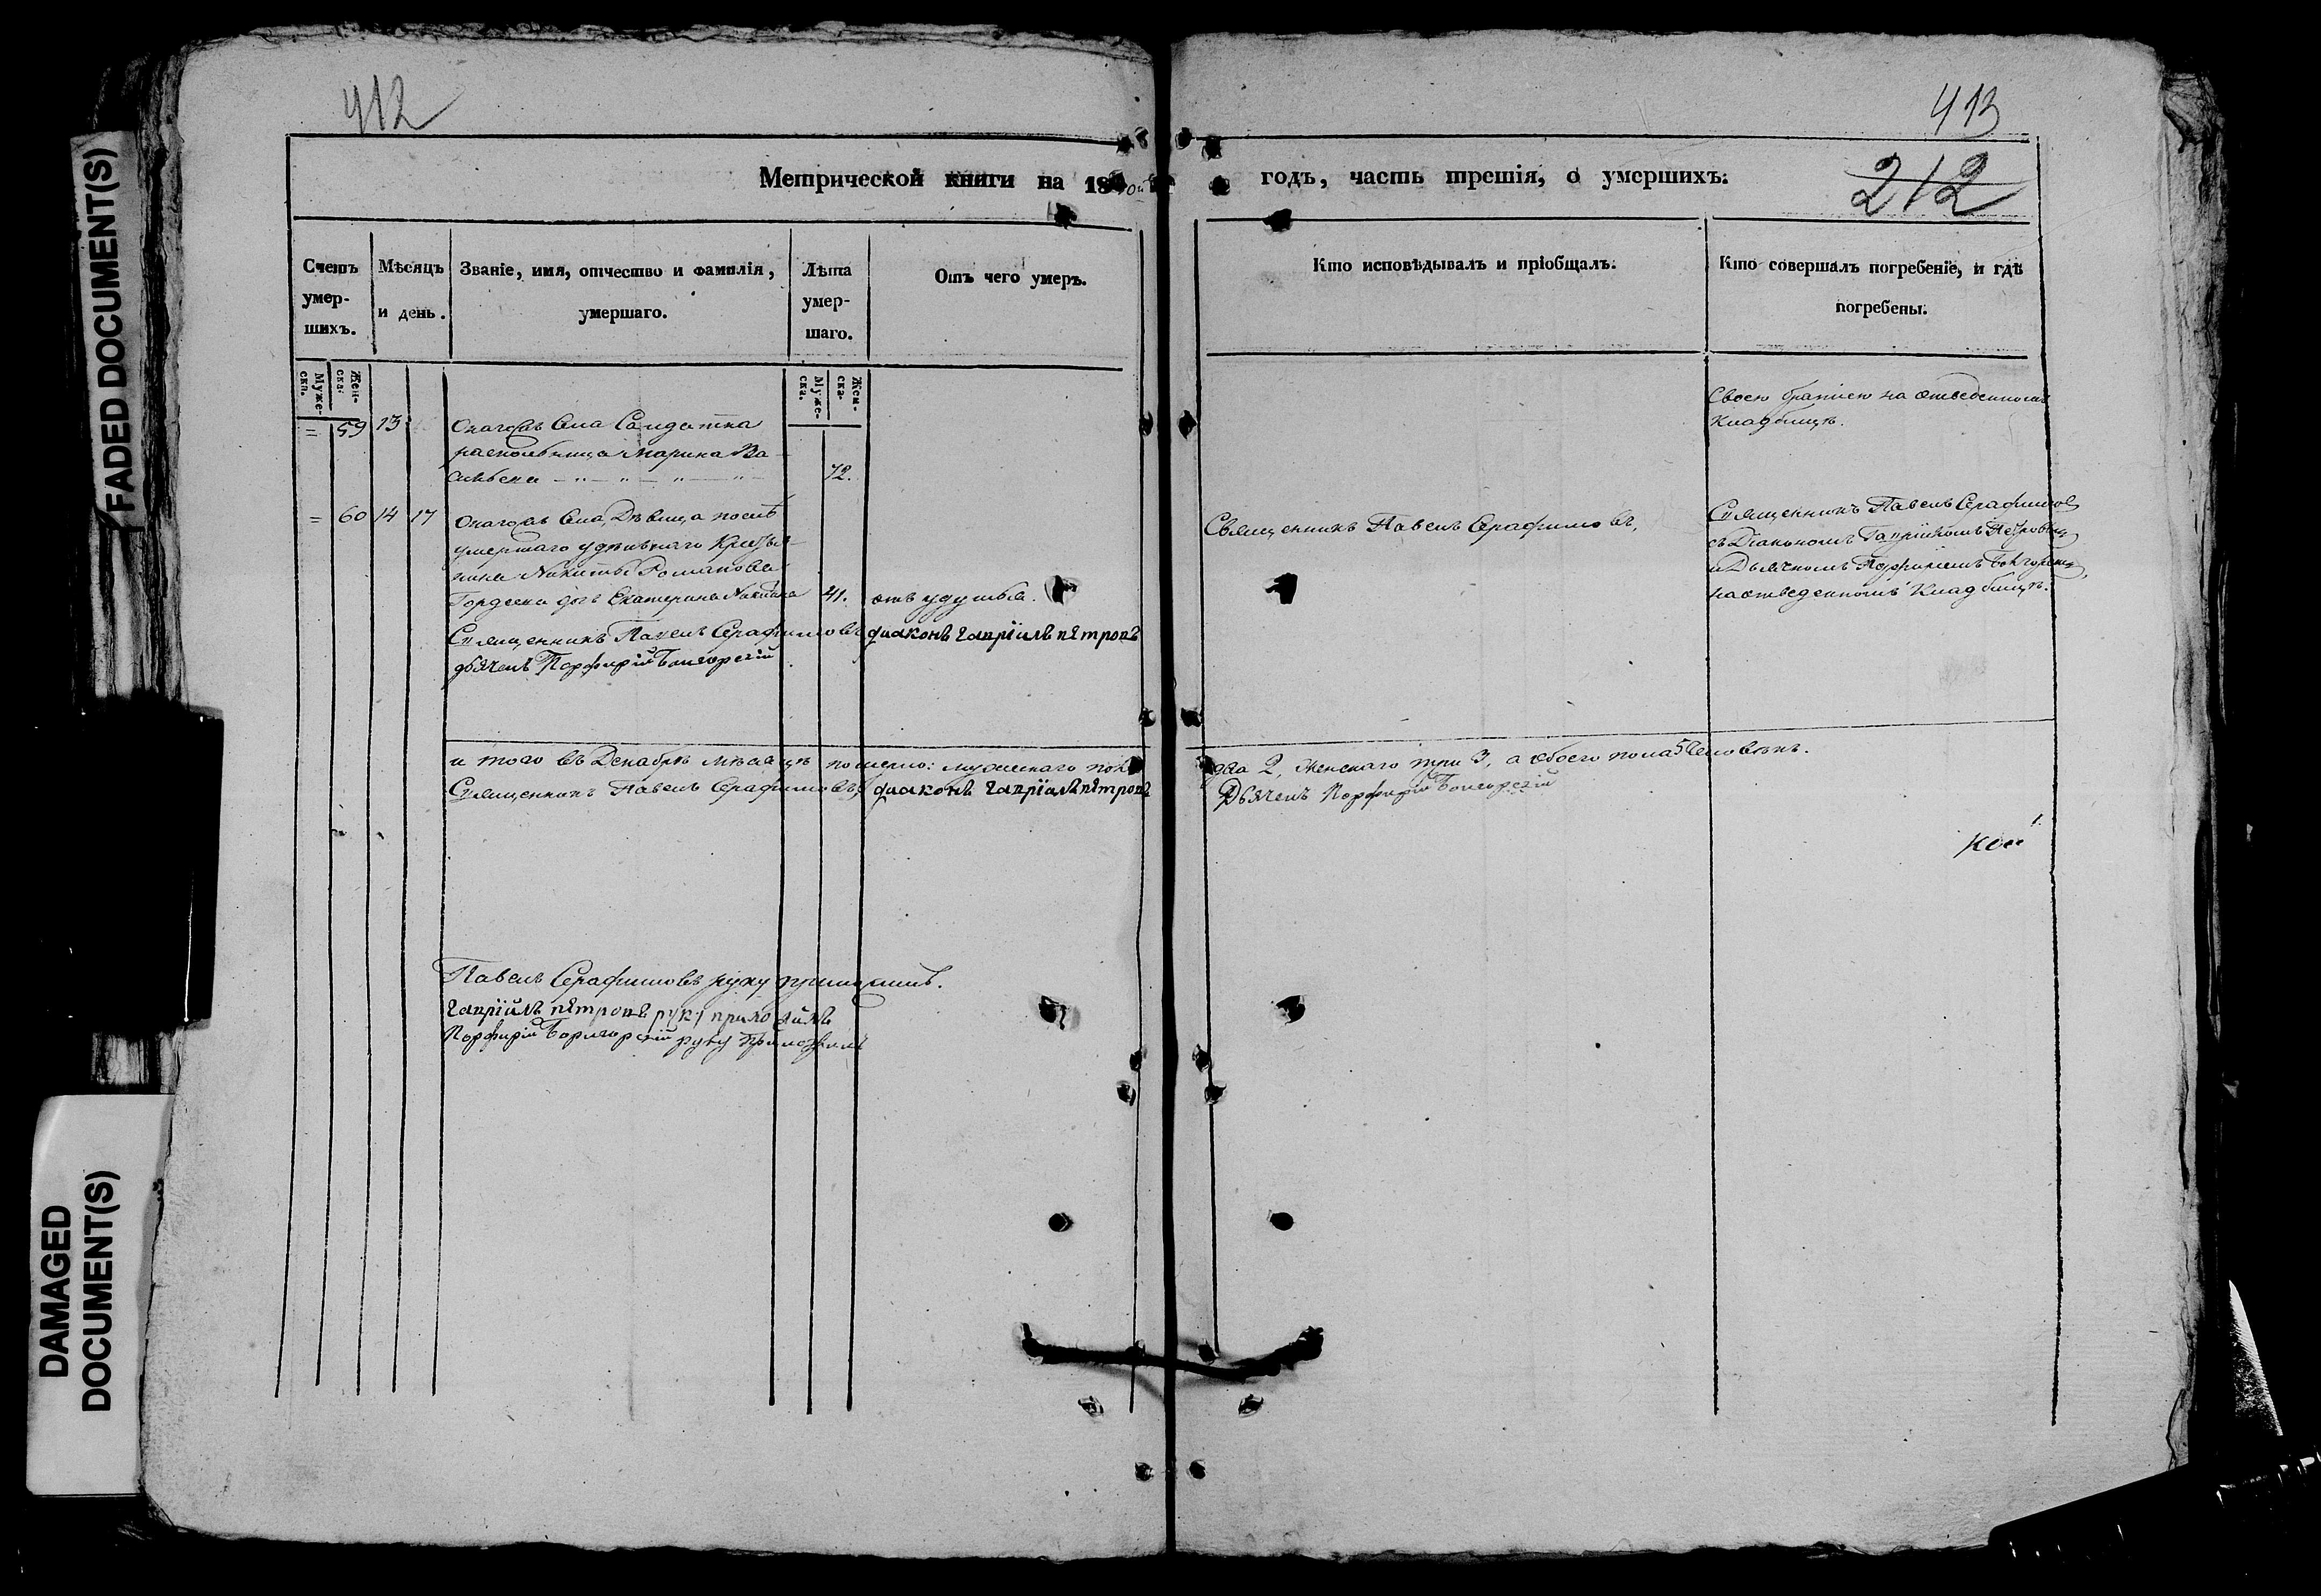 412
413
212
Метрической книги на 18
годъ, часть третія, о умершихъ.
Счетъ умер-шихъ.
Мѣсяцъ и день.
Званіе, имя, отчество и фамилія, умершаго.
Лѣта умер-шаго.
Отъ чего умеръ.
Кто исповѣдывалъ и пріобщалъ.
Кто совершалъ погребеніе, и гдѣ погребены.
Муже-ска.
Жен-ска.
Муже-ска.
Жен-ска.
= 59 13
Онагожъ Села Салдатка
Марина Ва-
сильева 72.
Своею братіею на отведенномъ
Кладбищѣ.
= 60 14 17
Онагожъ Села Дѣвица послѣ
умершаго удѣльнаго Кресть-
нина Никиты Романова
Гордеева дочь Екатерина Никитина 41. отъ удушья.
Священникъ Павелъ Серафимовъ,
Священникъ Павелъ Серафимовъ
съ Діакономъ Гавріиломъ Петровымъ
и Дьячкомъ Порфиріемъ
на отведенномъ Кладбищѣ.
Священникъ Павелъ Серафимовъ диаконъ гавріилъ пѣтровъ
дьячекъ Порфирій
и того въ Декабрѣ мѣсяцѣ померло: мужескаго пола два 2, Женскаго три 3, а обоего пола 5 Человѣкъ.
Священникъ Павелъ Серафимовъ, диаконъ гавріилъ пѣтровъ Дьячекъ Порфирій
Павелъ Серафимовъ руку приложилъ.
гавріилъ пѣтровъ руку приложилъ
Порфирій руку приложилъ
FADED DOCUMENT(S)
DAMAGED
DOCUMENT(S)